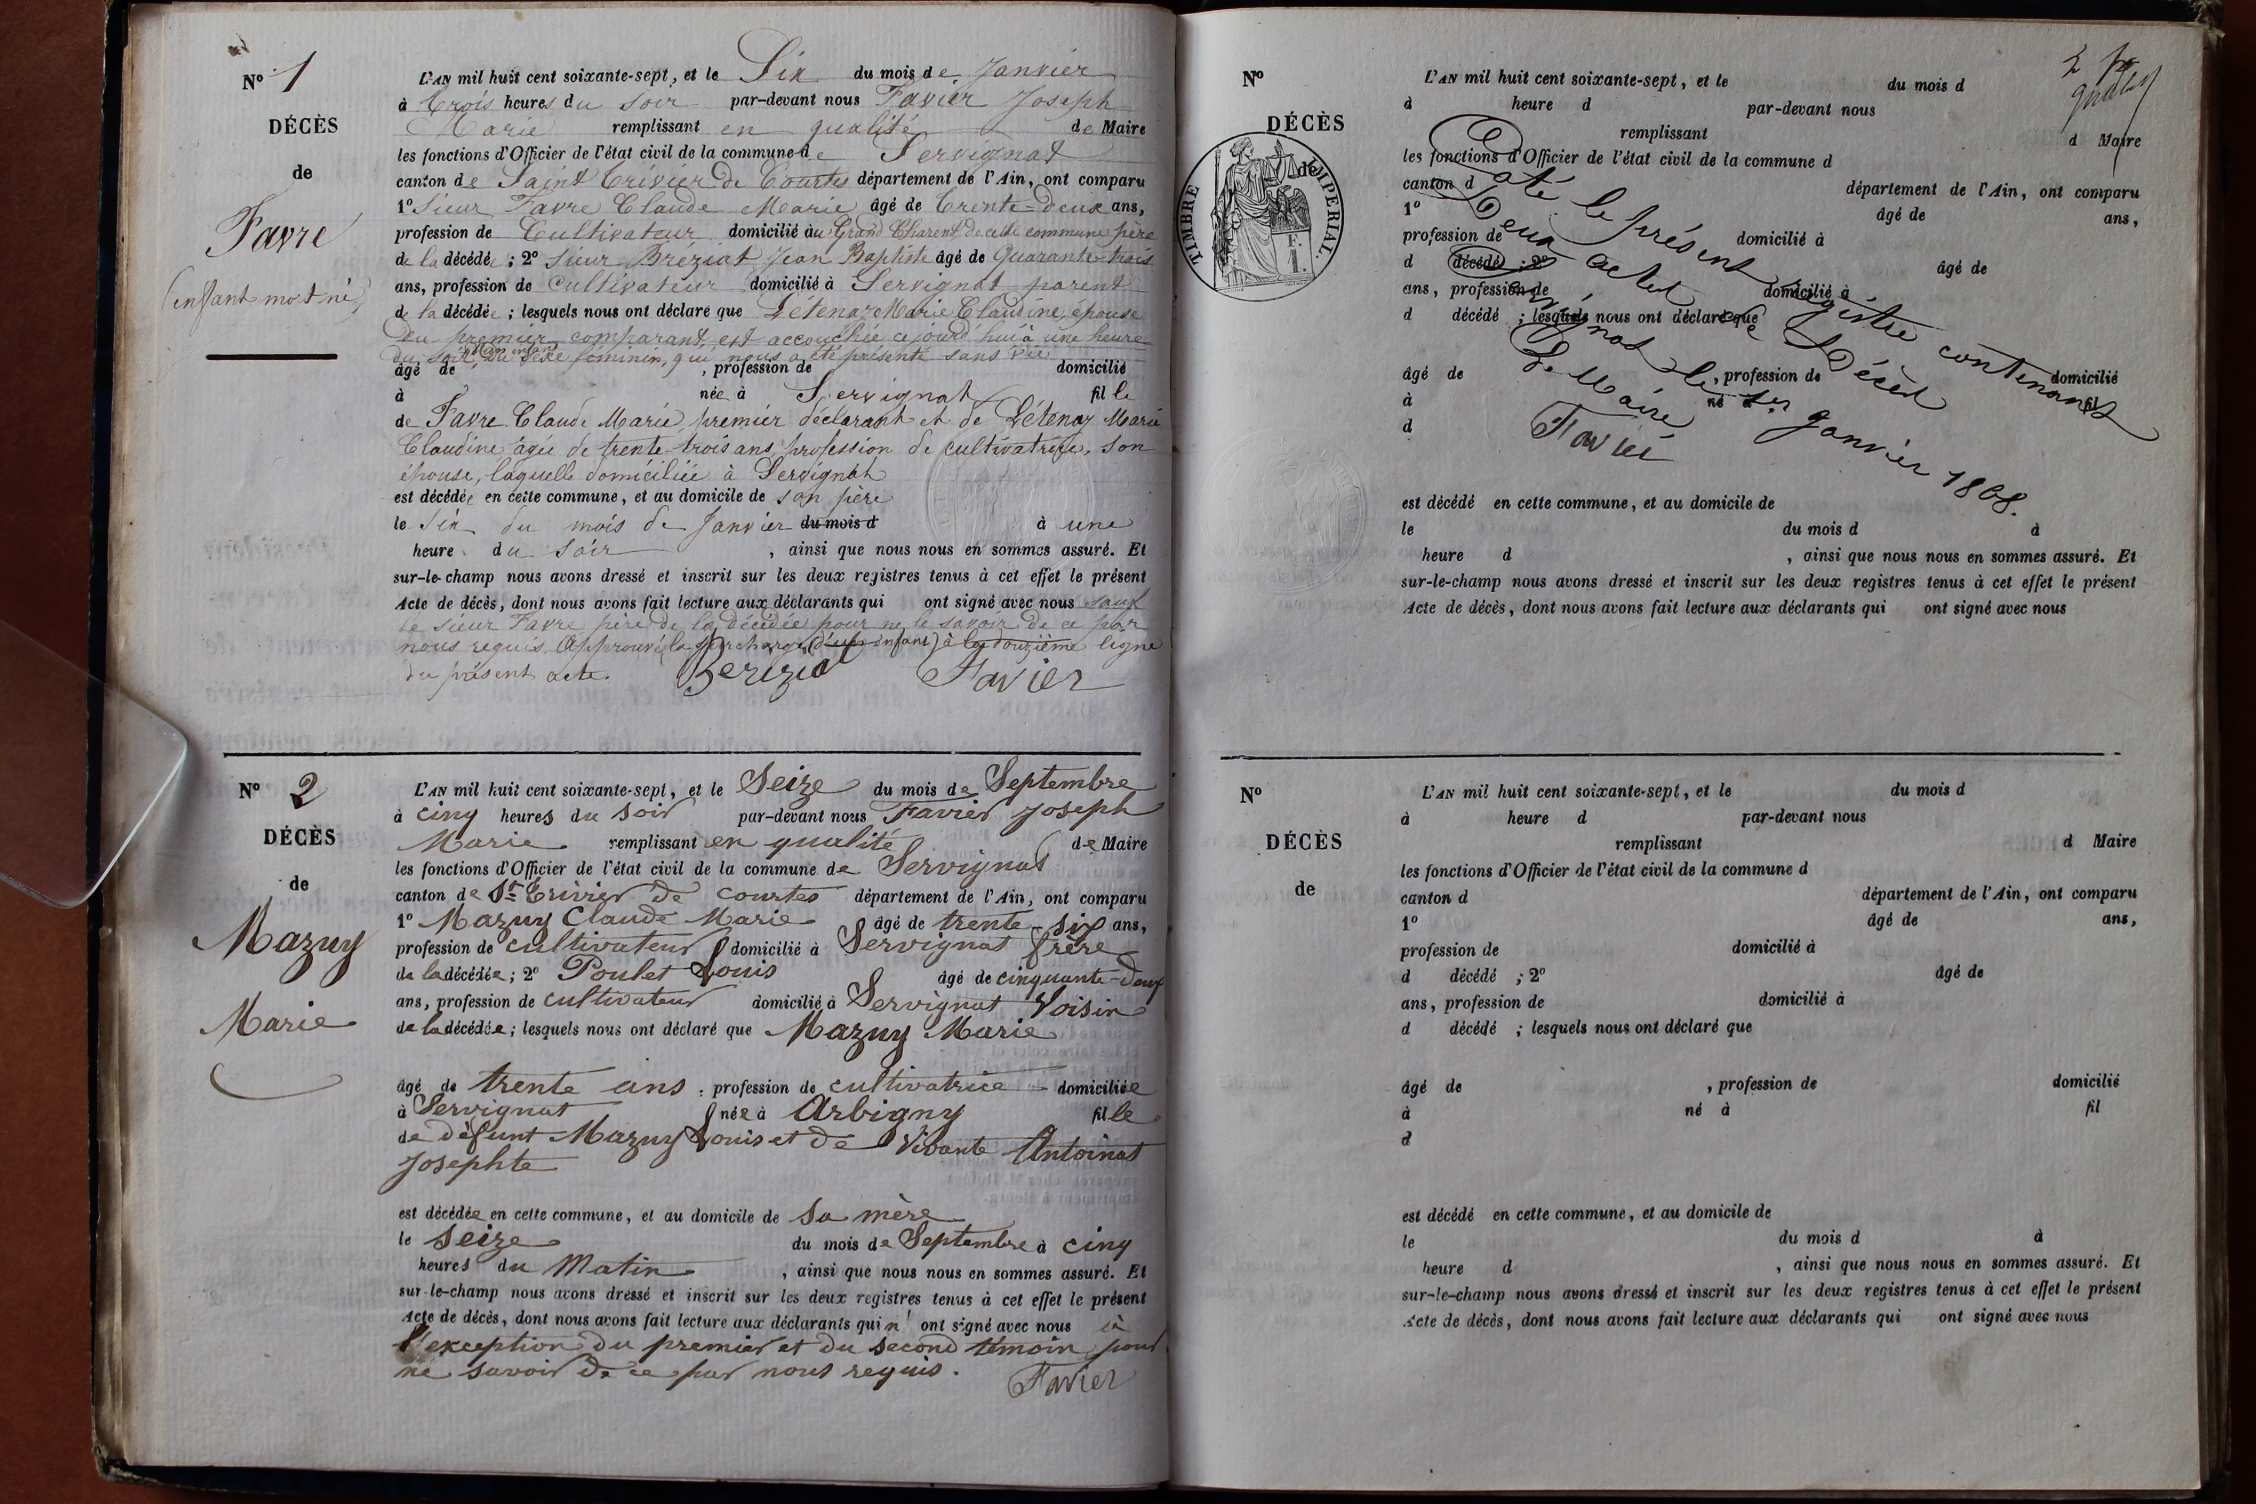 Nº 1
DÉCÈS
de
Favre
(enfant mort né)
L'AN mil huit cent soixante-sept, et le Six du mois de Janvier
à Trois heures du soir par-devant nous Favier Joseph
Marie remplissant en qualité de Maire
les fonctions d'Officier de l'état civil de la commune de Servignat
canton de Saint Trivier de Courtes département de l'Ain, ont comparu
1º Sieur Favre Claude Marie âgé de Trente-deux ans,
profession de Cultivateur domicilié au Grand Charent de cette commune père
de la décédée ; 2º Sieur Bréziat Jean Baptiste âgé de Quarante-trois
ans, profession de Cultivateur domicilié à Servignat parent
de la décédée ; lesquels nous ont déclaré que Létenaz Marie Claudine, épouse
du premier comparant, est accouchée ce jourd'hui à une heure
du soir, du sexe féminin, qui nous a été présenté sans vie
âgé de , profession de domicilié
à née à Servignat fille
de Favre Claude Marie, premier déclarant et de Létenaz Marie
Claudine âgée de trente-trois ans profession de cultivatrice, son
épouse, laquelle domiciliée à Servignat
est décédée en cette commune, et au domicile de son père
le Six du mois de Janvier du mois d à une
heure du soir , ainsi que nous nous en sommes assuré. Et
sur-le-champ nous avons dressé et inscrit sur les deux registres tenus à cet effet le présent
Acte de décès, dont nous avons fait lecture aux déclarants qui ont signé avec nous sauf
le sieur Favre père de la décédée pour ne le savoir de ce par
nous requis. Approuvé la surcharge (d'un enfant) à la douzième ligne
du présent acte. Bereziat Favier
Nº 2
DÉCÈS
de
Mazuy
Marie
L'AN mil huit cent soixante-sept, et le Seize du mois de Septembre
à cinq heures du soir par-devant nous Favier Joseph
Marie remplissant en qualité de Maire
les fonctions d'Officier de l'état civil de la commune de Servignat
canton de St Trivier de courtes département de l'Ain, ont comparu
1º Mazuy Claude Marie âgé de trente-six ans,
profession de cultivateur domicilié à Servignat frère
de la décédée ; 2º Poulet Louis âgé de cinquante-deux
ans, profession de cultivateur domicilié à Servignat Voisin
de la décédée ; lesquels nous ont déclaré que Mazuy Marie
âgé de trente ans , profession de cultivatrice domiciliée
à Servignat née à Arbigny fille
de défunt Mazuy Louis et de vivante Antoinat
Josephte
est décédée en cette commune, et au domicile de sa mère
le seize du mois de Septembre à cinq
heures du Matin , ainsi que nous nous en sommes assuré. Et
sur-le-champ nous avons dressé et inscrit sur les deux registres tenus à cet effet le présent
Acte de décès, dont nous avons fait lecture aux déclarants qui n' ont signé avec nous à
l'exception du premier et du second témoin pour
ne savoir de ce par nous requis. Favier
Nº
DÉCÈS
de
TIMBRE IMPERIAL.
L'AN mil huit cent soixante-sept, et le du mois d
à heure d par-devant nous
remplissant d Maire
les fonctions d'Officier de l'état civil de la commune d
canton d département de l'Ain, ont comparu
1º âgé de ans,
profession de domicilié à
d décédé ; 2º âgé de
ans, profession de domicilié à
d décédé ; lesquels nous ont déclaré que
âgé de , profession de domicilié
à né à fil
d
Coté le présent registre contenant
Deux actes de Décès
Servignat le 1er Janvier 1868.
Le Maire
Favier
est décédé en cette commune, et au domicile de
le du mois d à
heure d , ainsi que nous nous en sommes assuré. Et
sur-le-champ nous avons dressé et inscrit sur les deux registres tenus à cet effet le présent
Acte de décès, dont nous avons fait lecture aux déclarants qui ont signé avec nous
Nº
DÉCÈS
de
L'AN mil huit cent soixante-sept, et le du mois d
à heure d par-devant nous
remplissant d Maire
les fonctions d'Officier de l'état civil de la commune d
canton d département de l'Ain, ont comparu
1º âgé de ans,
profession de domicilié à
d décédé ; 2º âgé de
ans, profession de domicilié à
d décédé ; lesquels nous ont déclaré que
âgé de , profession de domicilié
à né à fil
d
est décédé en cette commune, et au domicile de
le du mois d à
heure d , ainsi que nous nous en sommes assuré. Et
sur-le-champ nous avons dressé et inscrit sur les deux registres tenus à cet effet le présent
Acte de décès, dont nous avons fait lecture aux déclarants qui ont signé avec nous